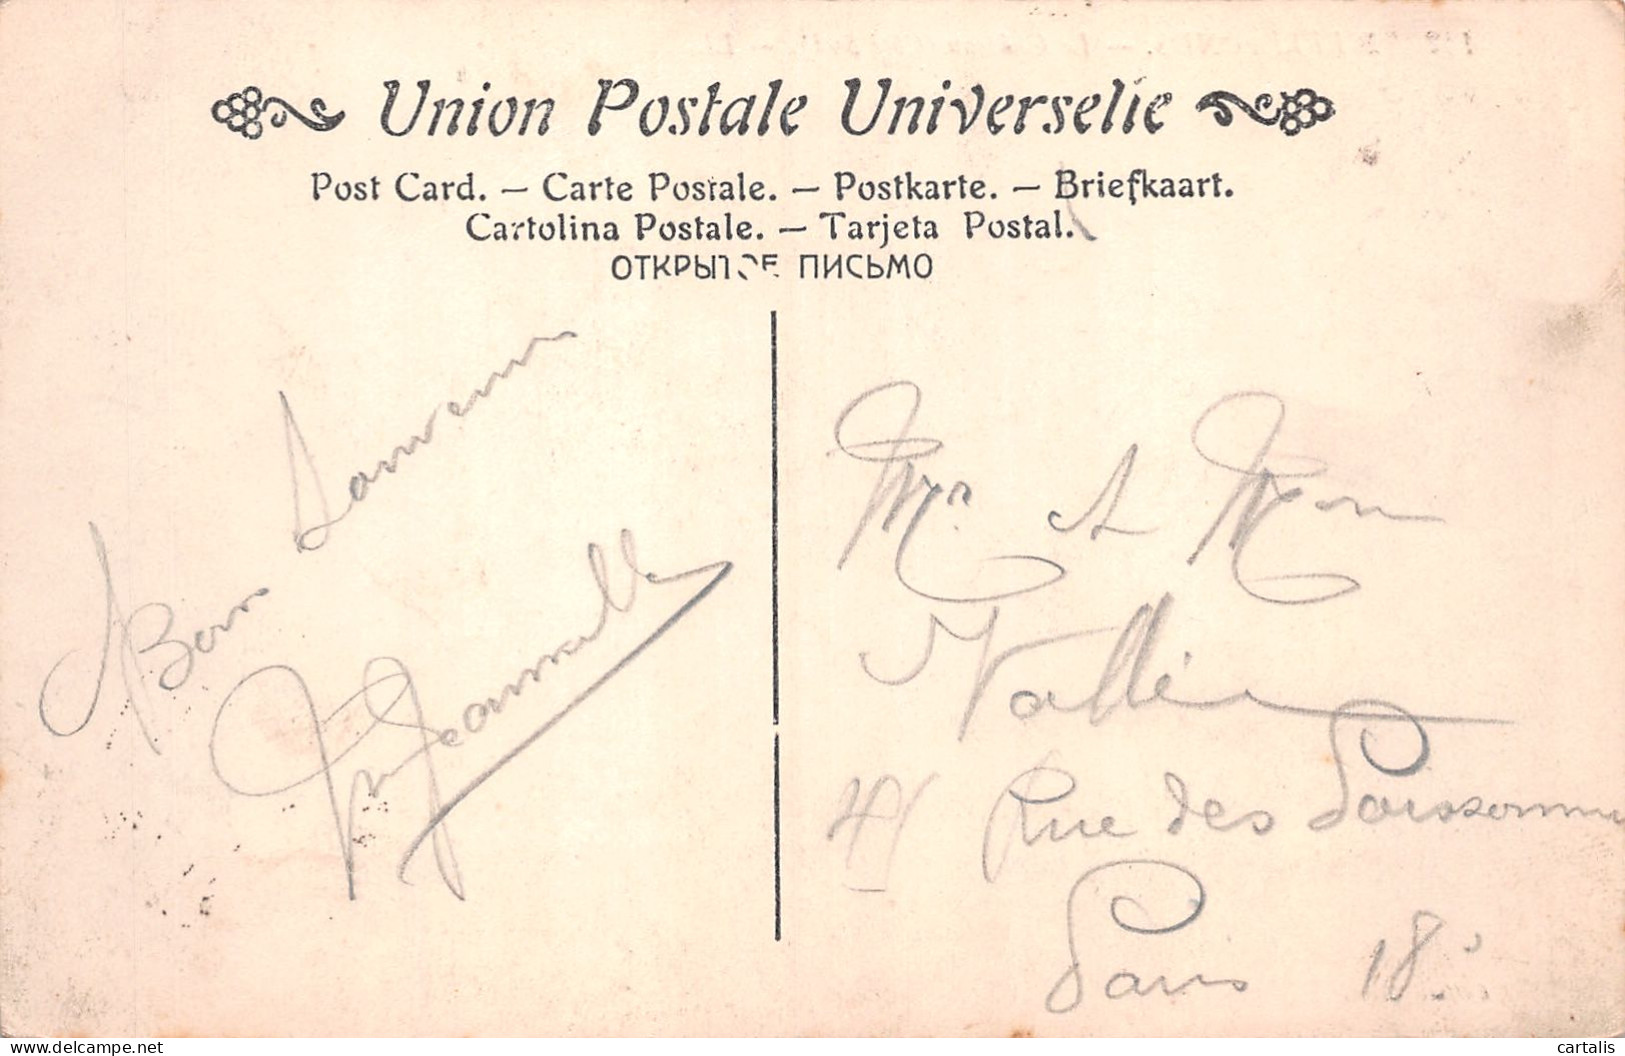 Union Postale Universelle
Post Card. — Carte Postale. — Postkarte. — Briefkaart.
Cartolina Postale. — Tarjeta Postal.
ОТКРЫТОЕ ПИСЬМО
Bon Souvenir
Mr & Mme
Vallée
Rue des Poissonniers
Paris 18e
delcampe.net
cartalis